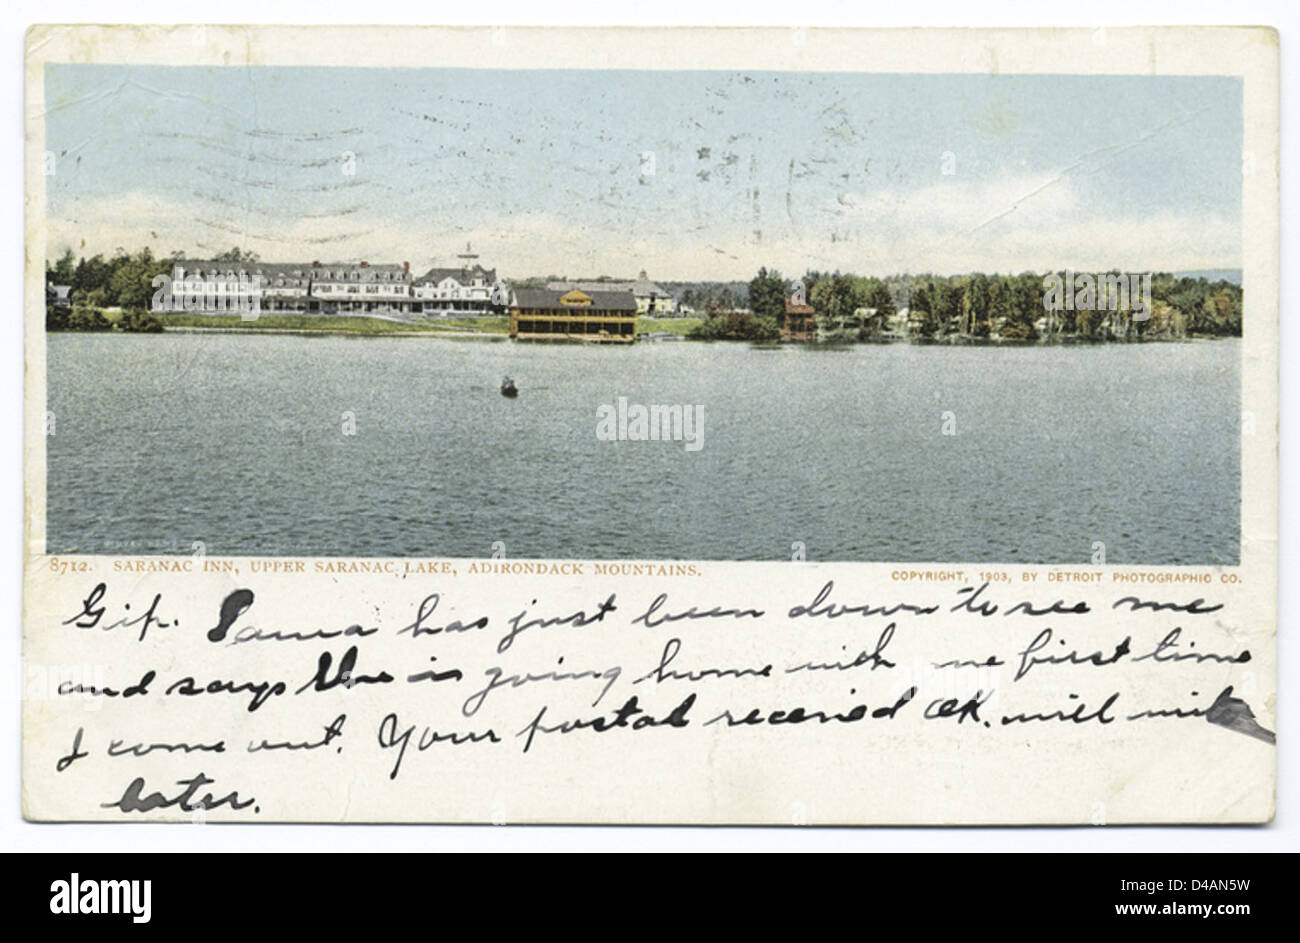 8712. SARANAC INN, UPPER SARANAC LAKE, ADIRONDACK MOUNTAINS.
COPYRIGHT, 1903, BY DETROIT PHOTOGRAPHIC CO.
Gip. has just been down to see me
and says she is going home with me first time
I come out. Your postal received OK. will write
later.
a alamy stock photo
alamy
Image ID: D4AN5W
www.alamy.com